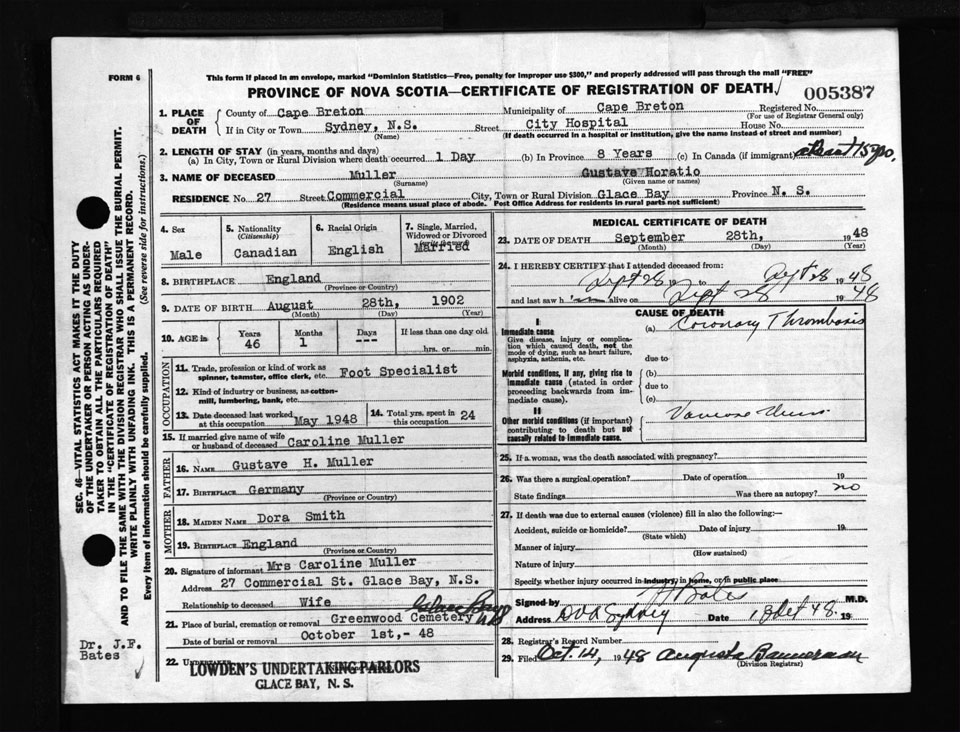 FORM 6
This form if placed in an envelope, marked "Dominion Statistics—Free, penalty for improper use $300," and properly addressed will pass through the mail "FREE"
PROVINCE OF NOVA SCOTIA—CERTIFICATE OF REGISTRATION OF DEATH
005387
1. PLACE OF DEATH
County of Cape Breton Municipality of Cape Breton Registered No.
(For use of Registrar General only)
If in City or Town Sydney, N.S. Street City Hospital House No.
(Name) (If death occurred in a hospital or institution, give the name instead of street and number)
2. LENGTH OF STAY (in years, months and days)
(a) In City, Town or Rural Division where death occurred 1 Day (b) In Province 8 Years (c) In Canada (if immigrant) at least 15 yrs.
3. NAME OF DECEASED Muller Gustave Horatio
(Surname) (Given name or names)
RESIDENCE No. 27 Street Commercial City, Town or Rural Division Glace Bay Province N. S.
(Residence means usual place of abode. Post Office Address for residents in rural parts not sufficient)
4. Sex
Male
5. Nationality
(Citizenship)
Canadian
6. Racial Origin
English
7. Single, Married, Widowed or Divorced
(write the word)
Married
8. BIRTHPLACE England
(Province or Country)
9. DATE OF BIRTH August 28th, 1902
(Month) (Day) (Year)
10. AGE in
Years Months Days If less than one day old
46 1 --- hrs. or min.
OCCUPATION
11. Trade, profession or kind of work as spinner, teamster, office clerk, etc. Foot Specialist
12. Kind of industry or business, as cotton-mill, lumbering, bank, etc.
13. Date deceased last worked at this occupation May 1948
14. Total yrs. spent in this occupation 24
15. If married give name of wife or husband of deceased Caroline Muller
FATHER
16. NAME Gustave H. Muller
17. BIRTHPLACE Germany
(Province or Country)
MOTHER
18. MAIDEN NAME Dora Smith
19. BIRTHPLACE England
(Province or Country)
20. Signature of informant Mrs Caroline Muller
Address 27 Commercial St. Glace Bay, N.S.
Relationship to deceased Wife
21. Place of burial, cremation or removal Greenwood Cemetery Glace Bay NS
Date of burial or removal October 1st,- 48
22. UNDERTAKER
LOWDEN'S UNDERTAKING PARLORS
GLACE BAY, N. S.
Dr. J.F.
Bates
MEDICAL CERTIFICATE OF DEATH
23. DATE OF DEATH September 28th, 1948
(Month) (Day) (Year)
24. I HEREBY CERTIFY that I attended deceased from:
Sept 28 19 to Sept 28 1948
and last saw h im alive on Sept 28 1948
CAUSE OF DEATH
I
Immediate cause
Give disease, injury or complication which caused death, not the mode of dying, such as heart failure, asphyxia, asthenia, etc.
(a) Coronary Thrombosis
due to
Morbid conditions, if any, giving rise to immediate cause (stated in order proceeding backwards from immediate cause).
(b)
due to
(c)
II
Other morbid conditions (if important) contributing to death but not causally related to immediate cause.
Varicose Ulcers
25. If a woman, was the death associated with pregnancy?
26. Was there a surgical operation? Date of operation 19
State findings Was there an autopsy? no
27. If death was due to external causes (violence) fill in also the following:—
Accident, suicide or homicide? Date of injury 19
(State which)
Manner of injury
(How sustained)
Nature of injury
Specify whether injury occurred in industry, in home, or in public place
Signed by Bates M.D.
Address DVA Sydney Date 1 Oct 48. 19
28. Registrar's Record Number
29. Filed Oct. 14, 1948 Augusta Bannerman
(Division Registrar)
SEC. 46—VITAL STATISTICS ACT MAKES IT THE DUTY
OF THE UNDERTAKER OR PERSON ACTING AS UNDER-
TAKER TO OBTAIN ALL THE PARTICULARS REQUIRED
IN THE "CERTIFICATE OF REGISTRATION OF DEATH"
AND TO FILE THE SAME WITH THE DIVISION REGISTRAR WHO SHALL ISSUE THE BURIAL PERMIT.
WRITE PLAINLY WITH UNFADING INK. THIS IS A PERMANENT RECORD.
Every item of information should be carefully supplied. (See reverse side for instructions.)